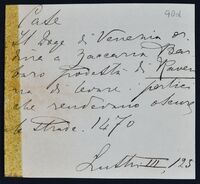 90d
Case
Il Doge di Venezia or
dina a Zaccaria Bar
baro podestà di Raven
na di levare i portici
che rendevano oscure
le strade. 1470
Lustri III, 123